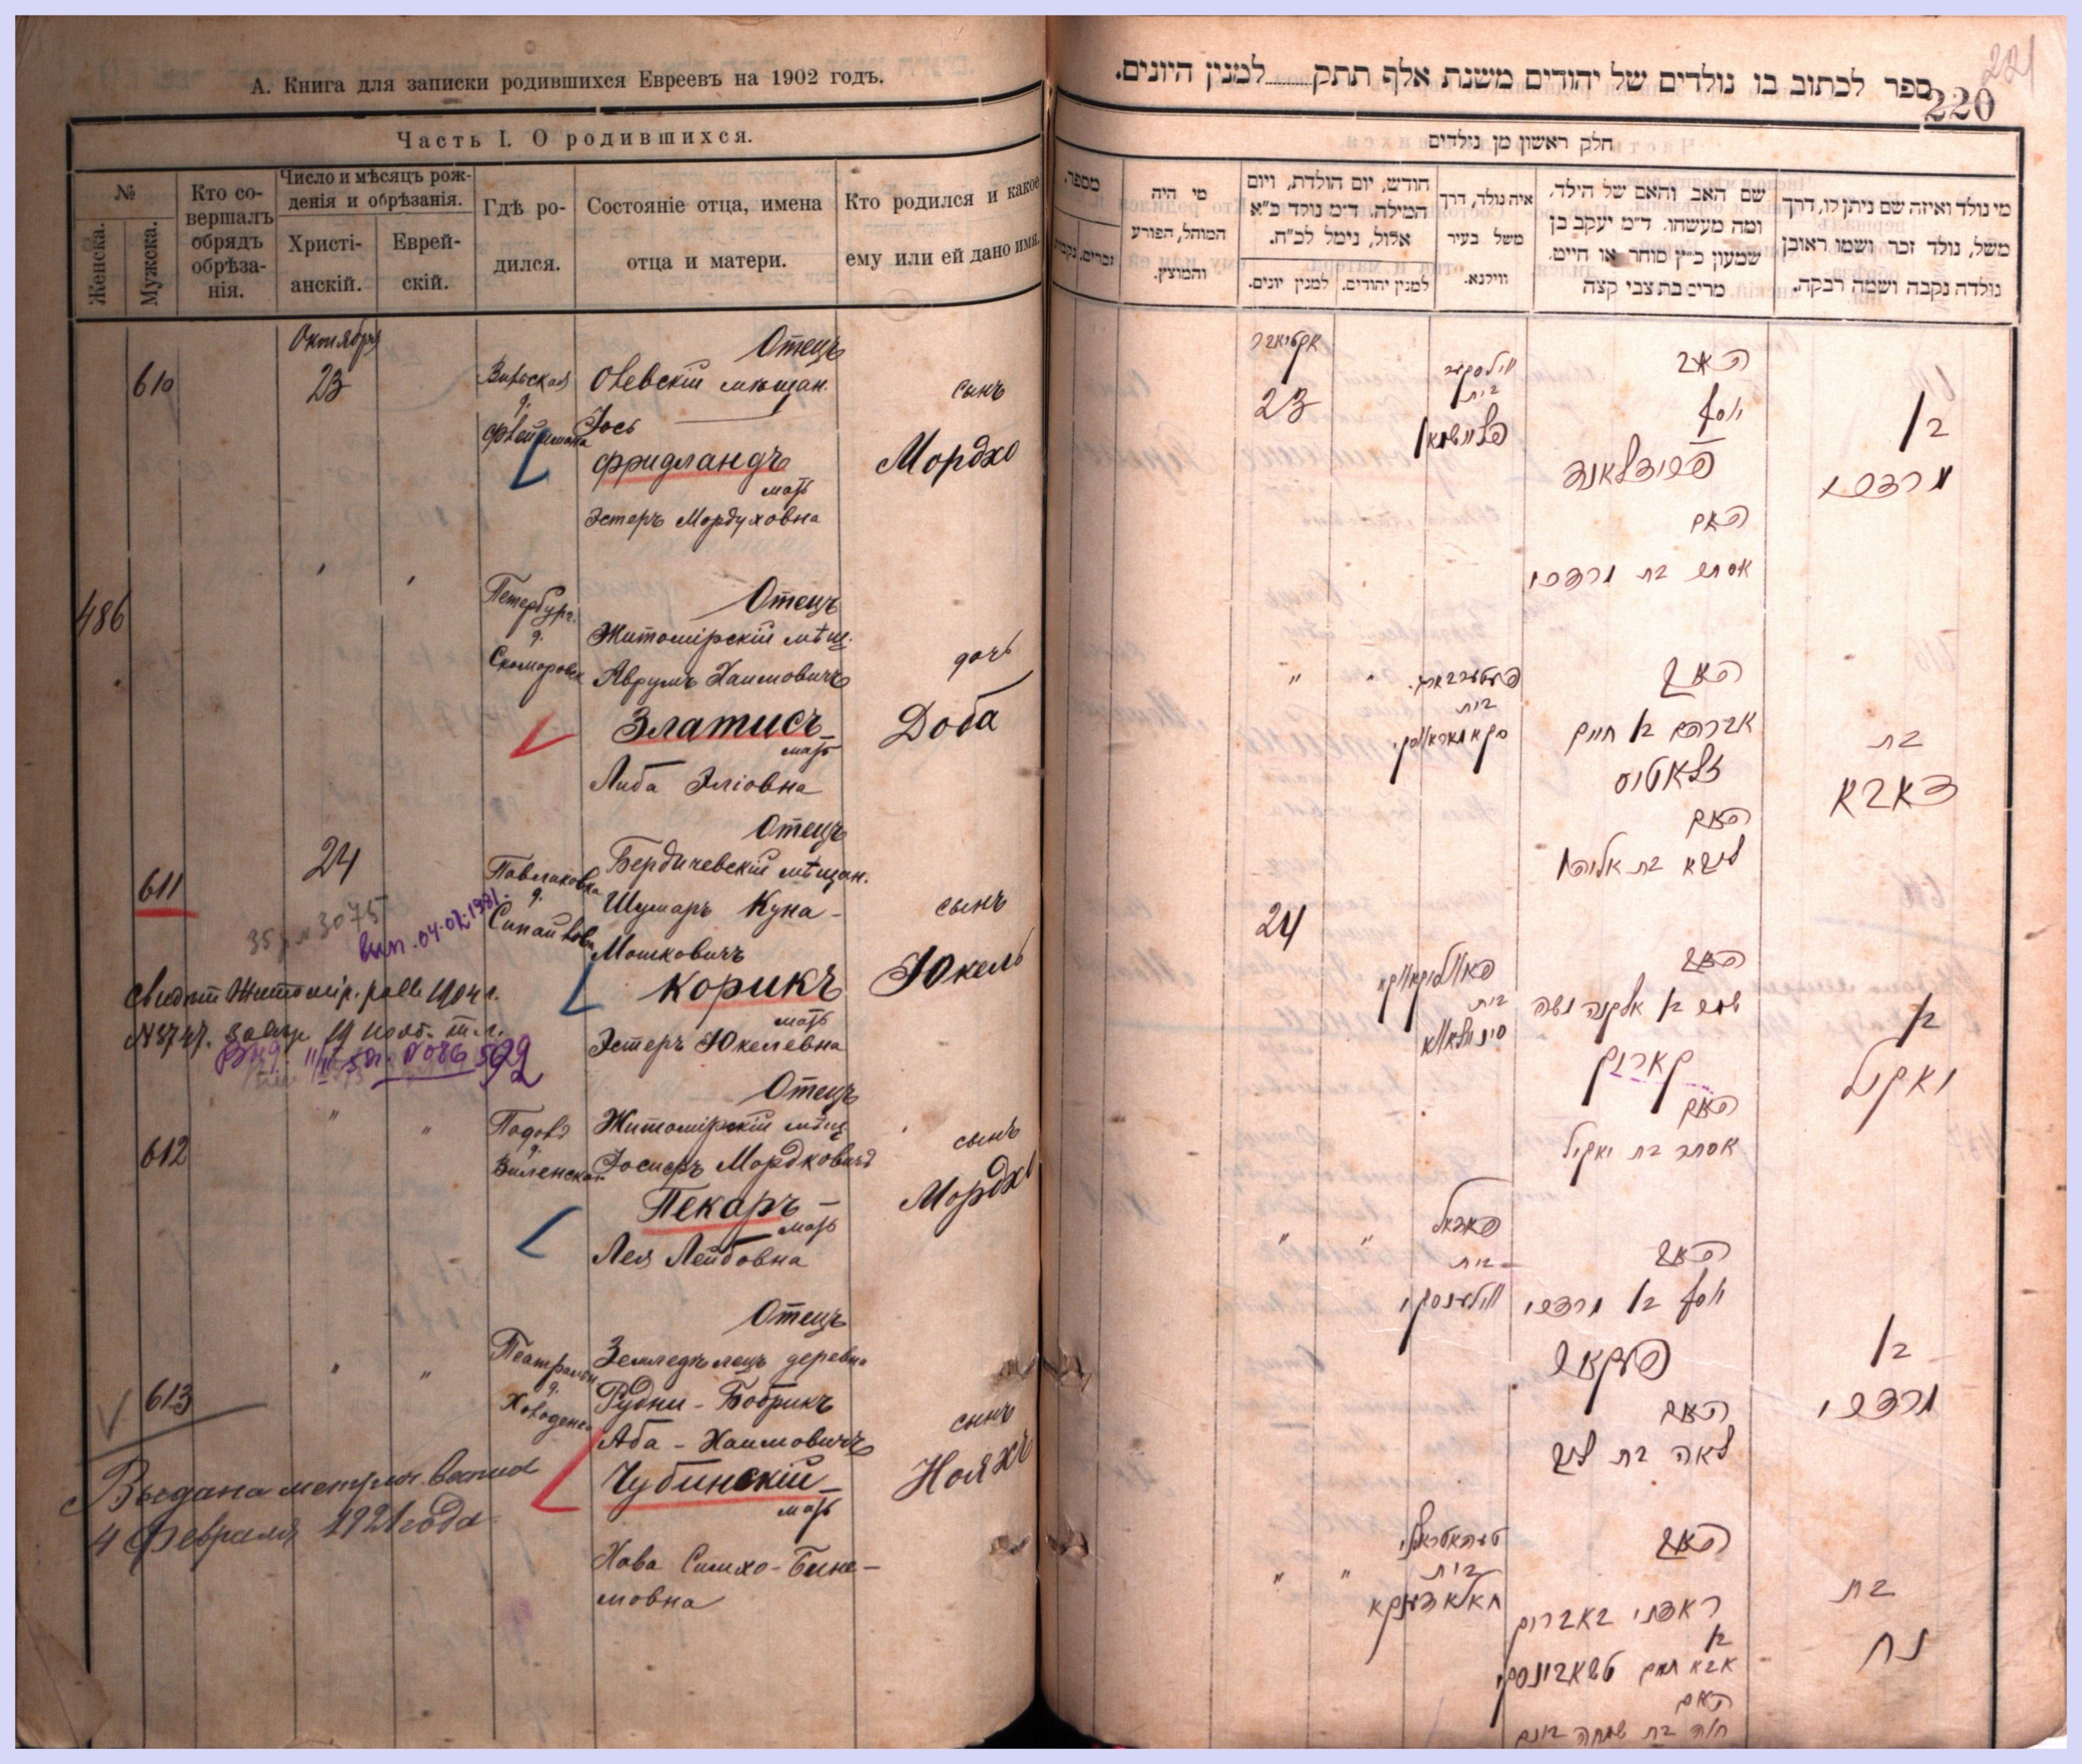 А. Книга для записки родившихся Евреевъ на 1902 годъ.
Часть I. О родившихся.
№
Женска.
Мужска.
Кто со-
вершалъ
обрядъ
обрѣза-
нія.
Число и мѣсяцъ рож-
денія и обрѣзанія.
Христі-
анскій.
Еврей-
скій.
Гдѣ ро-
дился.
Состояніе отца, имена
отца и матери.
Кто родился и какое
ему или ей дано имя.
Октября
610
23
Отецъ
Овевскій мѣщан.
Іось
Фридландъ
мать
Эстеръ Мордуховна
сынъ
Мордхо
486
Петербург.
д.
Отецъ
Житомірскій мѣщ.
Аврумъ Хаимовичъ
Златисъ
мать
Либа Эліовна
дочь
Доба
611
24
Павликовка
д.
Отецъ
Бердичевскій мѣщан.
Шумаръ Куна-
Мошковичъ
Корикъ
мать
Эстеръ Юкелевна
сынъ
Юкель
35 3075
вип. 04.02.1981.
1904 г.
612
д.
Виленская
Отецъ
Житомірскій мѣщ
Іосифъ Мордковичъ
Пекаръ
мать
Лея Лейбовна
сынъ
Мордхо
613
д.
Отецъ
Земледѣлецъ деревни
Рудни-Бобрикъ
Аба-Хаимовичъ
Чубинскій
мать
Хава Симхо-Бине-
мовна
сынъ
Нояхъ
Выдана метрич. выпись
4 Февраля 1921 года
221
220
ספר לכתוב בו נולדים של יהודים משנת אלף תתק..........למנין היונים.
חלק ראשון מן נולדים
מספר.
זכרים, נקבות
מי היה
המוהל, הפורע
והמוצץ.
חודש, יום הולדת, ויום
המילה. ד״מ נולד כ״א
אלול, נימל לכ״ח.
למנין יונים.
למנין יהודים.
איה נולד, דרך
משל בעיר
ווילנא.
שם האב והאם של הילד.
ומה מעשהו. ד״מ יעקב בן
שמעון כ״ץ סוחר או חייט.
מרים בת צבי קצה
מי נולד ואיזה שם ניתן לו, דרך
משל, נולד זכר ושמו ראובן
נולדה נקבה ושמה רבקה.
אקטיאבר
23
בית
האב
יוסף
פרידלאנד
האם
אסתר בת מרדכי
בן
מרדכי
בית
האב
אברהם בן חיים
זלאטיס
האם
ליבא בת אליהו
בת
דאבא
24
בית
האב
קאריק
האם
אסתר בת יאקיל
בן
יאקיל
בית
ווילענסקי
האב
יוסף בן מרדכי
פעקאר
האם
לאה בת ליב
בן
מרדכי
בית
האב
בן
האם
חוה בת שמחה בונם
בת
נח